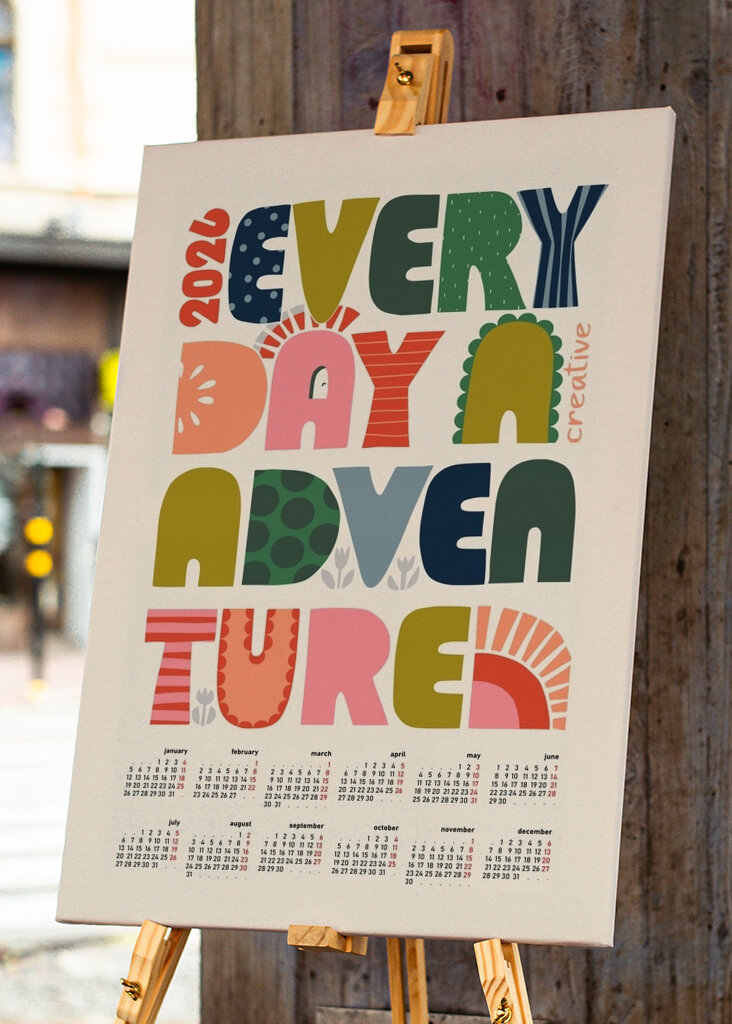 2026
EVERY
DAY A
creative
ADVEN
TURE
january
1 2 3 4
5 6 7 8 9 10 11
12 13 14 15 16 17 18
19 20 21 22 23 24 25
26 27 28 29 30 31
february
1
2 3 4 5 6 7 8
9 10 11 12 13 14 15
16 17 18 19 20 21 22
23 24 25 26 27 28
march
1
2 3 4 5 6 7 8
9 10 11 12 13 14 15
16 17 18 19 20 21 22
23 24 25 26 27 28 29
30 31
april
1 2 3 4 5
6 7 8 9 10 11 12
13 14 15 16 17 18 19
20 21 22 23 24 25 26
27 28 29 30
may
1 2 3
4 5 6 7 8 9 10
11 12 13 14 15 16 17
18 19 20 21 22 23 24
25 26 27 28 29 30 31
june
1 2 3 4 5 6 7
8 9 10 11 12 13 14
15 16 17 18 19 20 21
22 23 24 25 26 27 28
29 30
july
1 2 3 4 5
6 7 8 9 10 11 12
13 14 15 16 17 18 19
20 21 22 23 24 25 26
27 28 29 30 31
august
1 2
3 4 5 6 7 8 9
10 11 12 13 14 15 16
17 18 19 20 21 22 23
24 25 26 27 28 29 30
31
september
1 2 3 4 5 6
7 8 9 10 11 12 13
14 15 16 17 18 19 20
21 22 23 24 25 26 27
28 29 30
october
1 2 3 4
5 6 7 8 9 10 11
12 13 14 15 16 17 18
19 20 21 22 23 24 25
26 27 28 29 30 31
november
1
2 3 4 5 6 7 8
9 10 11 12 13 14 15
16 17 18 19 20 21 22
23 24 25 26 27 28 29
30
december
1 2 3 4 5 6
7 8 9 10 11 12 13
14 15 16 17 18 19 20
21 22 23 24 25 26 27
28 29 30 31